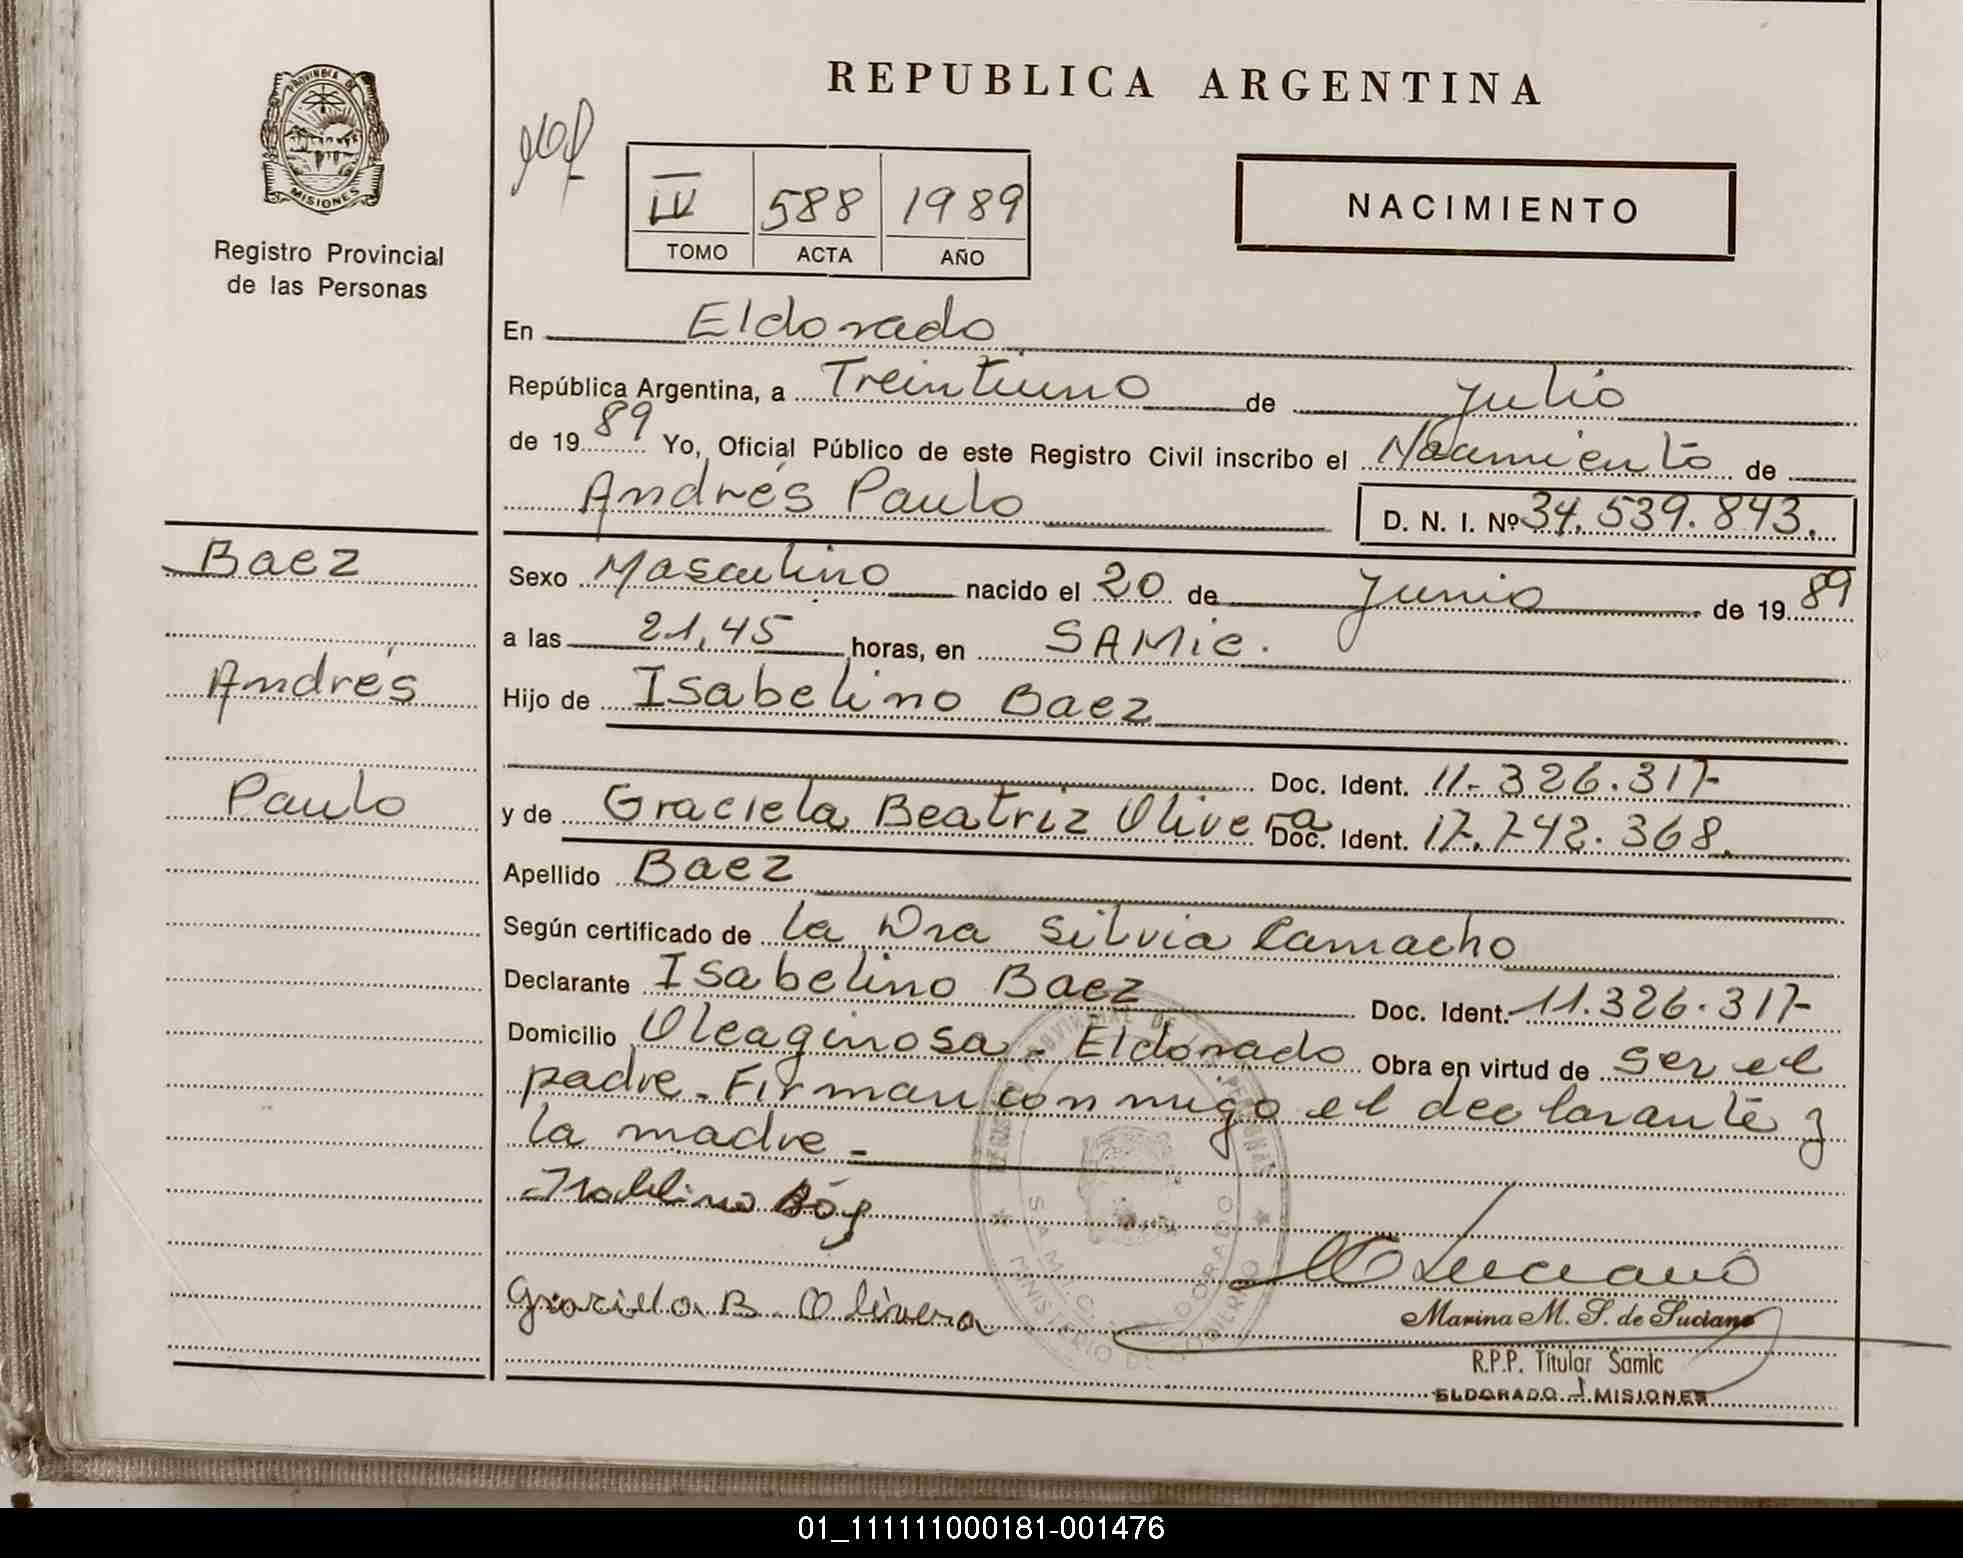 REPUBLICA ARGENTINA
PROVINCIA DE
MISIONES
Registro Provincial
de las Personas
IV 588 1989
TOMO ACTA AÑO
NACIMIENTO
En Eldorado
República Argentina, a Treintiuno de Julio
de 1989 Yo, Oficial Público de este Registro Civil inscribo el Nacimiento de
Andrés Paulo D. N. I. Nº 34.539.843.
Baez
Andrés
Paulo
Sexo Masculino nacido el 20 de Junio de 1989
a las 21,45 horas, en SAMic.
Hijo de Isabelino Baez
Doc. Ident. 11.326.317-
y de Graciela Beatriz Olivera Doc. Ident. 17.742.368.
Apellido Baez
Según certificado de la Dra Silvia Camacho
Declarante Isabelino Baez Doc. Ident. 11.326.317-
Domicilio Oleaginosa - Eldorado Obra en virtud de ser el
padre - Firman conmigo el declarante y
la madre -
Graciela B. Olivera
Luciano
Marina M. S. de Luciano
R.P.P. Titular Samic
ELDORADO - MISIONES
01_111111000181-001476